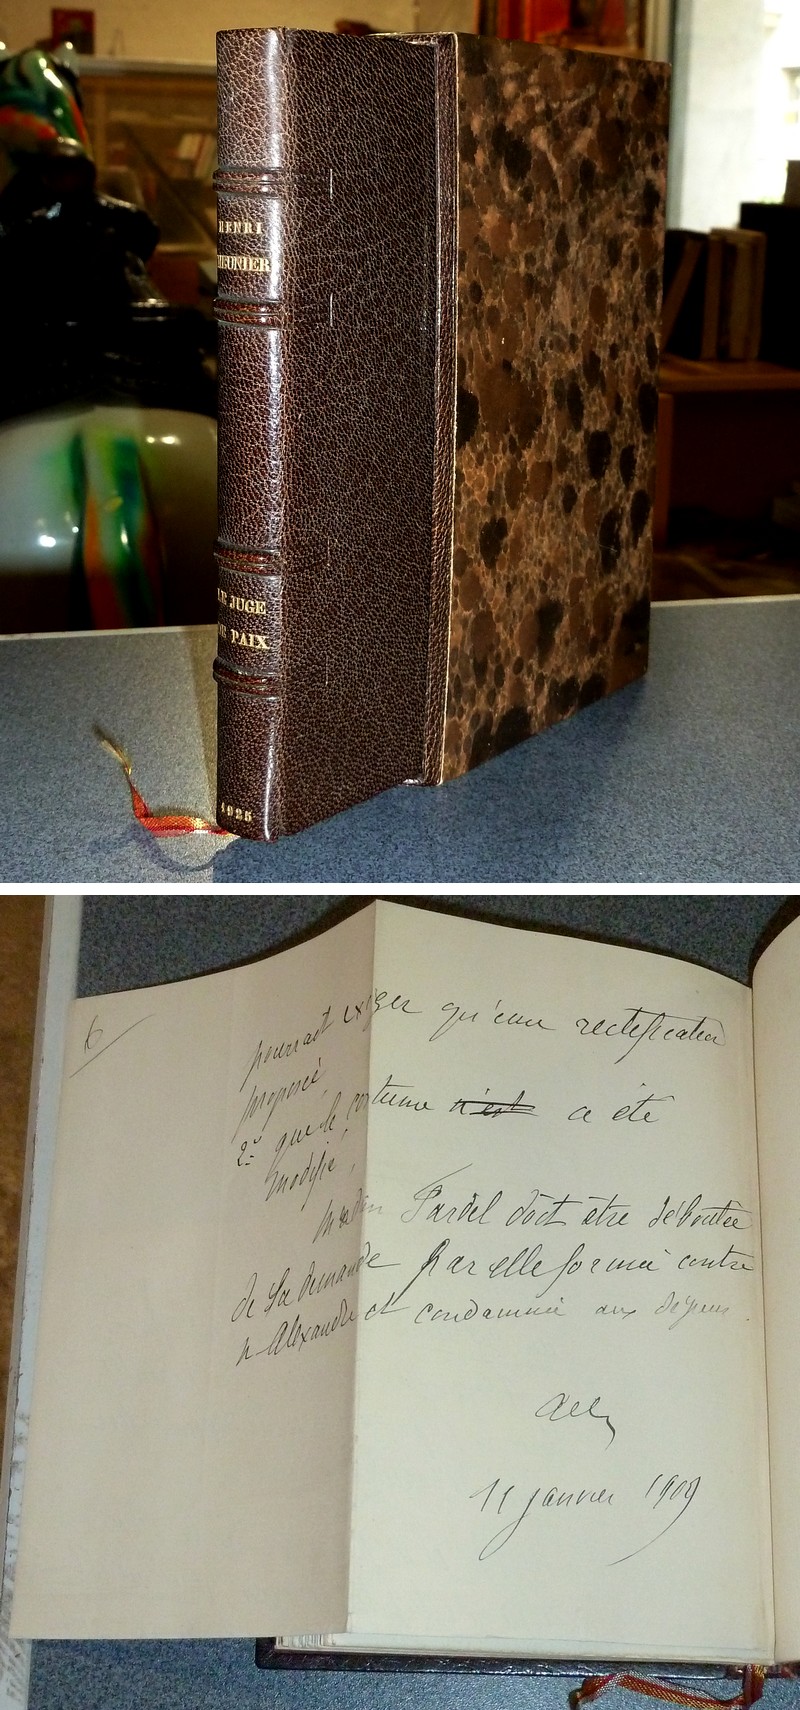 HENRI
MEUNIER
LE JUGE
DE PAIX
1925
6
pourrait exiger qu'une rectification
proposée,
2° que le costume n'est a été
modifié,
Pardel doit être déboutée
de sa demande par elle formée contre
Alexandre et condamnée aux dépens.
11 janvier 1909